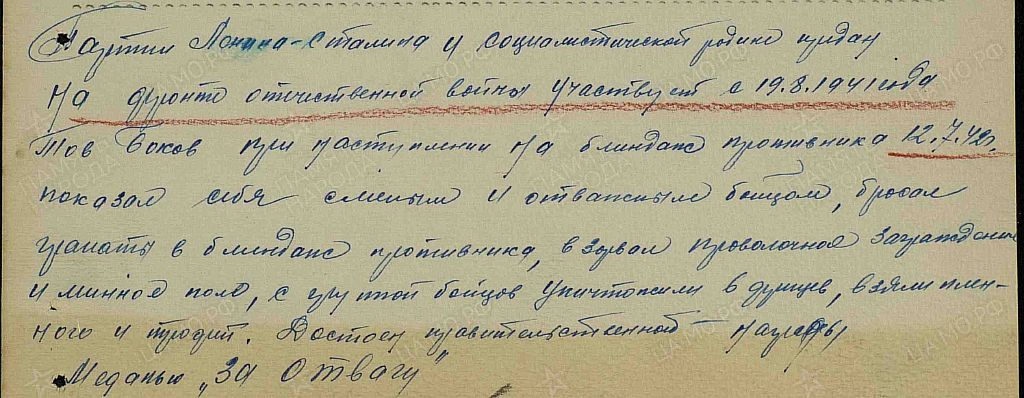 Партии Ленина-Сталина и социалистической родине предан
На фронте отечественной войны участвует с 19.8.1941 года
Тов Боков при наступлении на блиндаж противника 12.7.42г.
показал себя смелым и отважным бойцом, бросал
гранаты в блиндаж противника, взорвал проволочное заграждение
и минное поле, с группой бойцов уничтожили 8 фрицев, взяли плен-
ного и трофеи. Достоен правительственной награды
Медалью „За Отвагу"